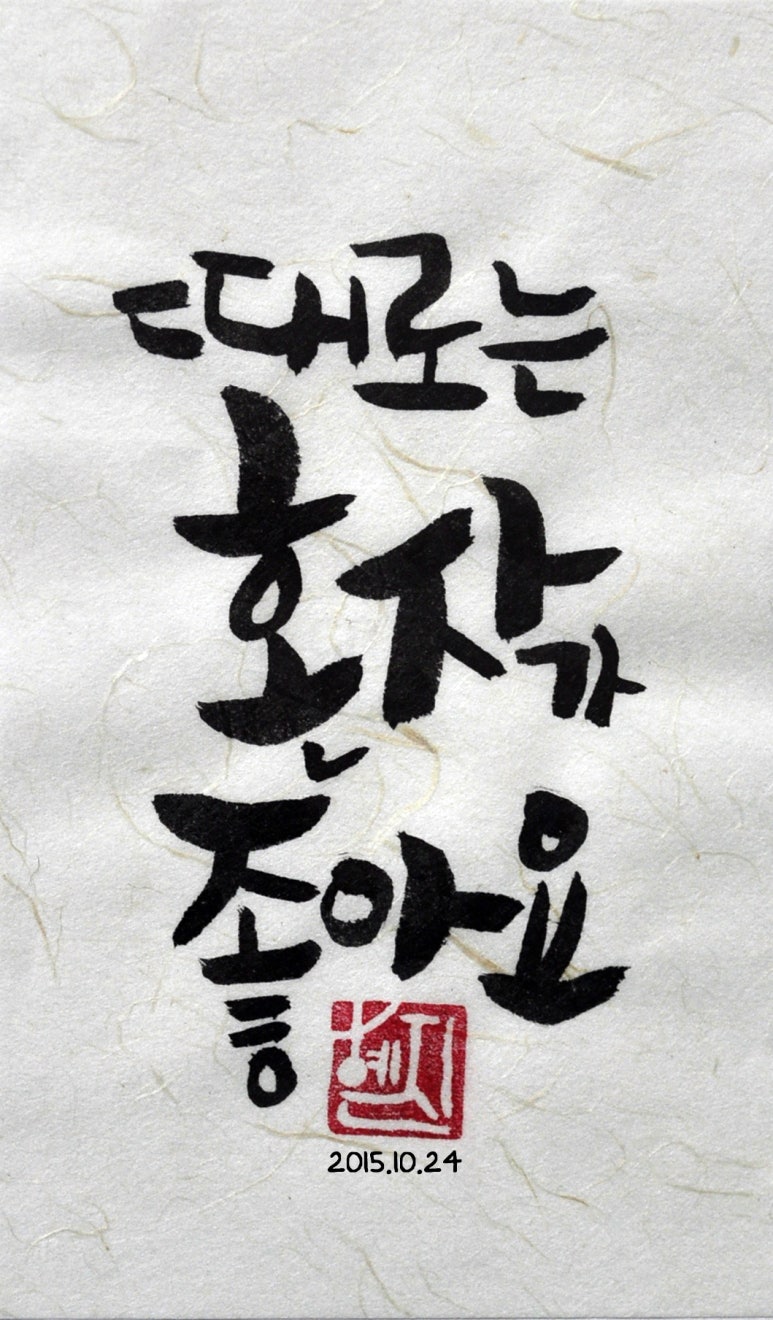 때로는
혼자가
좋아요
2015.10.24